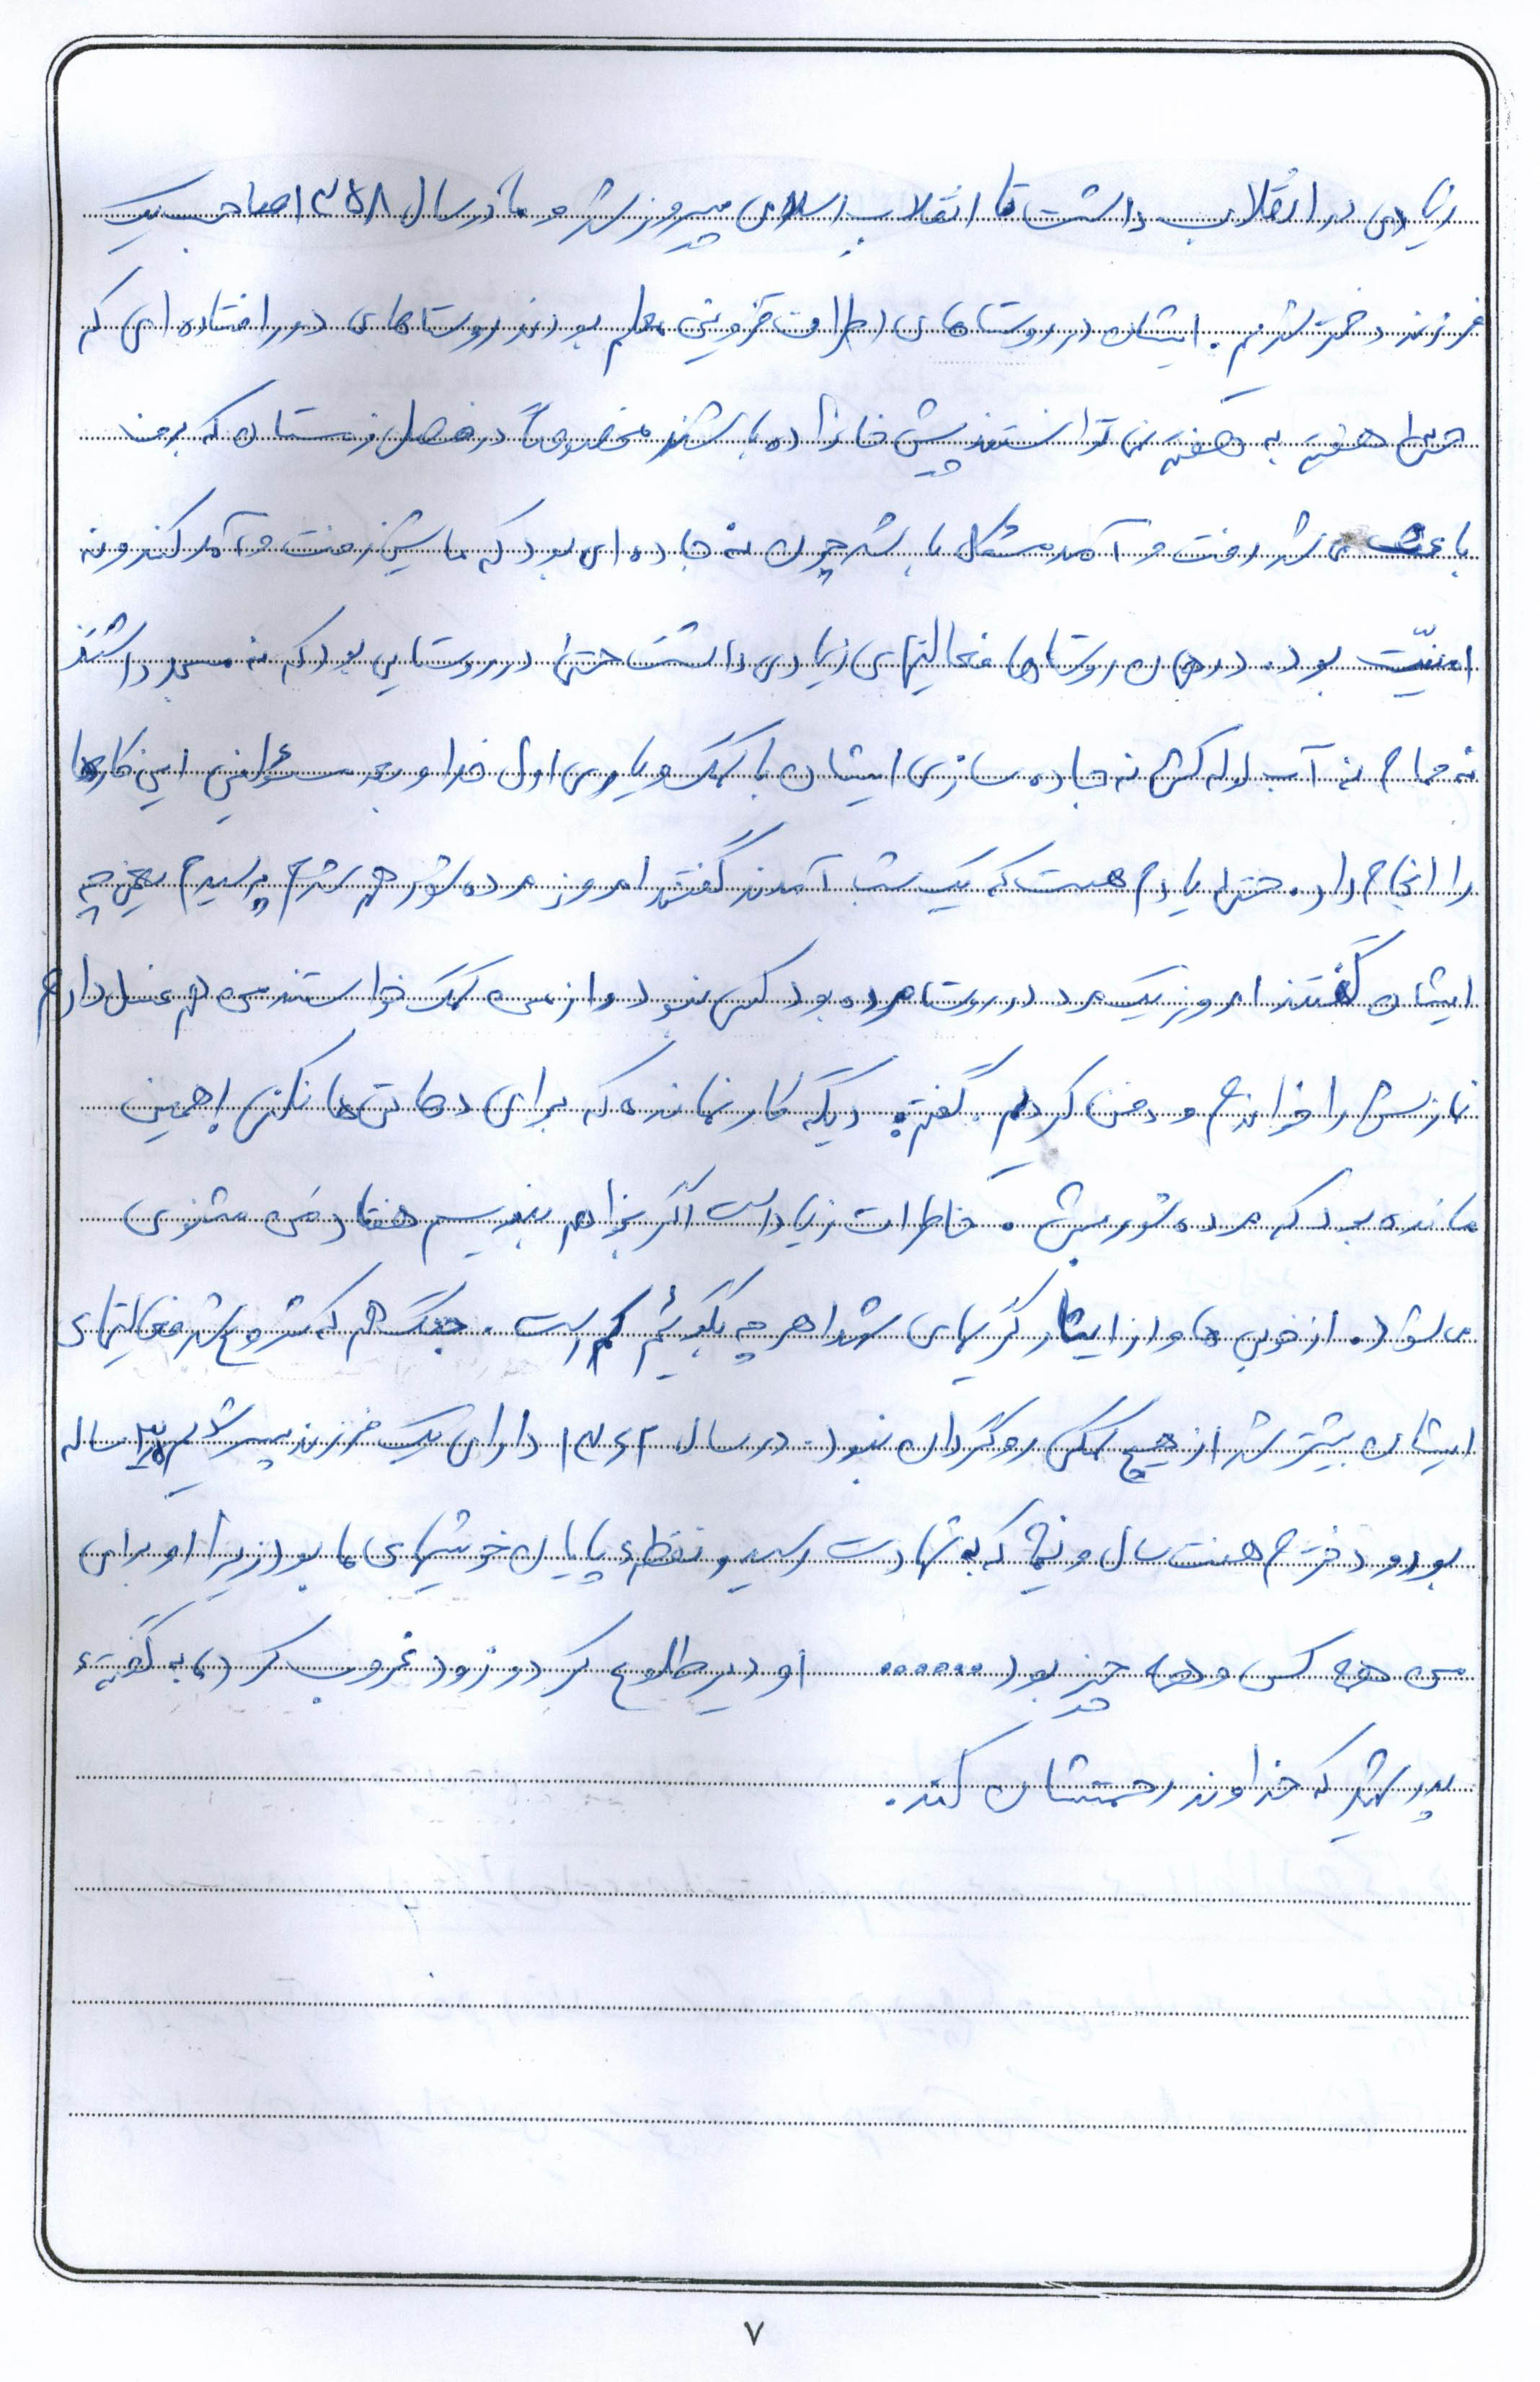 زیادی در انقلاب داشت تا انقلاب اسلامی پیروز شد و ما در سال ۱۳۵۸ صاحب یک
فرزند دختر شدیم. ایشان در روستاهای اطراف قزوین معلم بودند روستاهای دور افتاده ای که
حتی هفته به هفته نمی توانستند پیش خانواده باشند مخصوصاً در فصل زمستان که برف
باعث می شد رفت و آمد مشکل باشد چون نه جاده ای بود که ماشین رفت و آمد کند و نه
امنیّت بود. در همان روستاها فعالیتهای زیادی داشت حتی در روستایی بود که نه مسجد داشتند
نه حمام نه آب لوله کشی نه جاده سازی ایشان با کمک و یاری اول خدا و بعد مسئولین این کارها
را انجام داد. حتی یادم هست که یک شب آمدند گفتند امروز مرده شور هم شدم پرسیدم یعنی چه
ایشان گفتند امروز یک مرد در روستا مرده بود کسی نبود و از من کمک خواستند من هم غسل دادم
نمازش را خواندم و دفن کردیم. گفتم: دیگه کار نمانده که برای دهاتی ها نکنی! همین
مانده بود که مرده شور بشی. خاطرات زیاد است اگر بخواهم بنویسم هفتاد من مثنوی
می شود. از خوبی ها و از ایثارگریهای شهدا هر چه بگوئیم کم است. جنگ هم که شروع شد فعالیتهای
ایشان بیشتر شد از هیچ کمکی روگردان نبود. در سال ۱۳۶۲ دارای یک فرزند پسر شدیم ساله
بود و دخترم هفت سال و نیم که به شهادت رسید و نقطهء پایان خوشیهای ما بود زیرا او برای
من همه کس و همه چیز بود ....... او دیر طلوع کرد و زود غروب کرد، به گفتهء
پدر شهید که خداوند رحمتشان کند.
۷